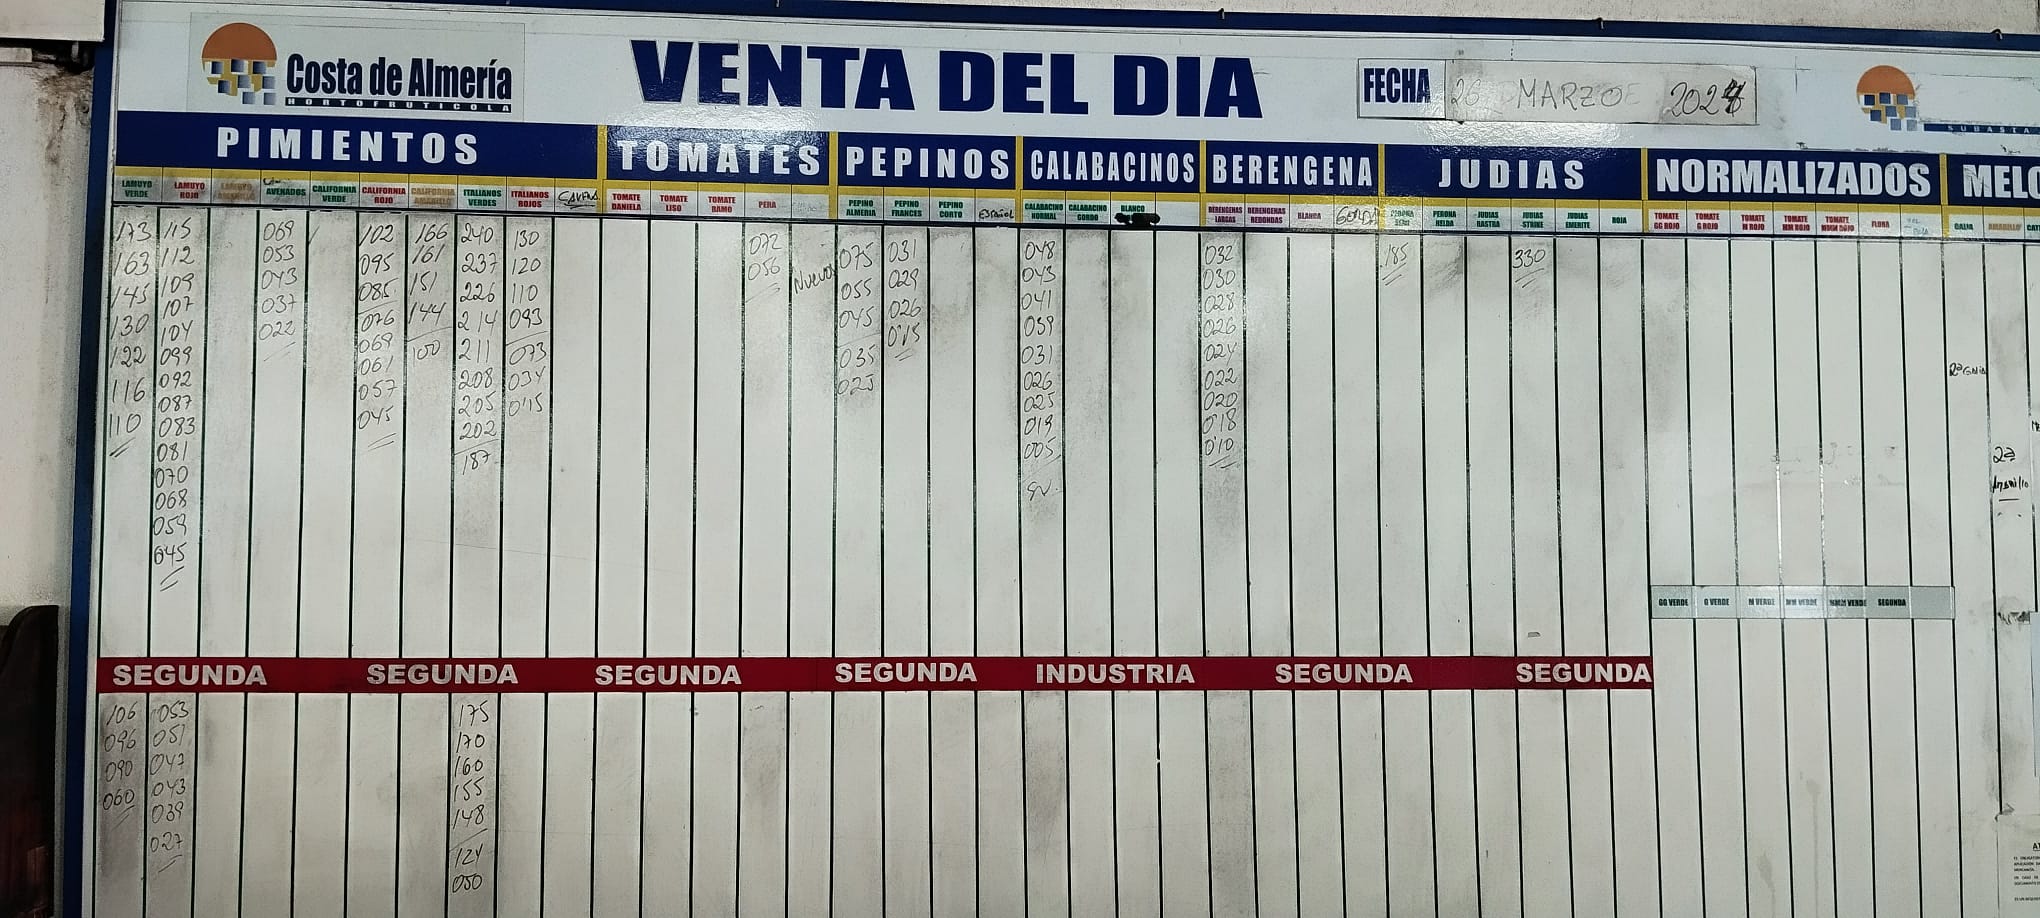 Costa de Almería
HORTOFRUTICOLA
VENTA DEL DIA
FECHA 26 MARZO 2024
SUBASTA
PIMIENTOS TOMATES PEPINOS CALABACINOS BERENGENA JUDIAS NORMALIZADOS MELO
LAMUYO VERDE
173
163
145
130
122
116
110
LAMUYO ROJO
115
112
109
107
104
099
092
087
083
081
070
068
059
045
LAMUYO AMARILLO
AVENADOS
069
053
043
037
022
CALIFORNIA VERDE
CALIFORNIA ROJO
102
095
085
076
069
061
057
045
CALIFORNIA AMARILLO
166
161
151
144
100
ITALIANOS VERDES
240
237
226
214
211
208
205
202
187
ITALIANOS ROJOS
130
120
110
093
073
034
0'15
TOMATE DANIELA
TOMATE LISO
TOMATE RAMO
PERA
072
056
Nuevos
PEPINO ALMERIA
075
055
045
035
025
PEPINO FRANCES
031
029
026
0'15
PEPINO CORTO
ESPAÑOL
CALABACINO NORMAL
048
043
041
039
031
026
025
019
005
CALABACINO GORDO
BLANCO
BERENGENAS LARGAS
032
030
028
026
024
022
020
0'18
0'10
BERENGENAS REDONDAS
BLANCA
GORDA
PERONA SEMI
185
PERONA HELDA
JUDIAS RASTRA
JUDIAS STRIKE
330
JUDIAS EMERITE
ROJA
TOMATE GG ROJO
TOMATE G ROJO
TOMATE M ROJO
TOMATE MM ROJO
TOMATE MMM ROJO
FLORA
GALIA
AMARILLO
CAT
2ª Galia
2ª
Amarillo
GG VERDE G VERDE M VERDE MM VERDE MMM VERDE SEGUNDA
SEGUNDA SEGUNDA SEGUNDA SEGUNDA INDUSTRIA SEGUNDA SEGUNDA
106
096
090
060
053
051
047
043
039
027
175
170
160
155
148
124
050